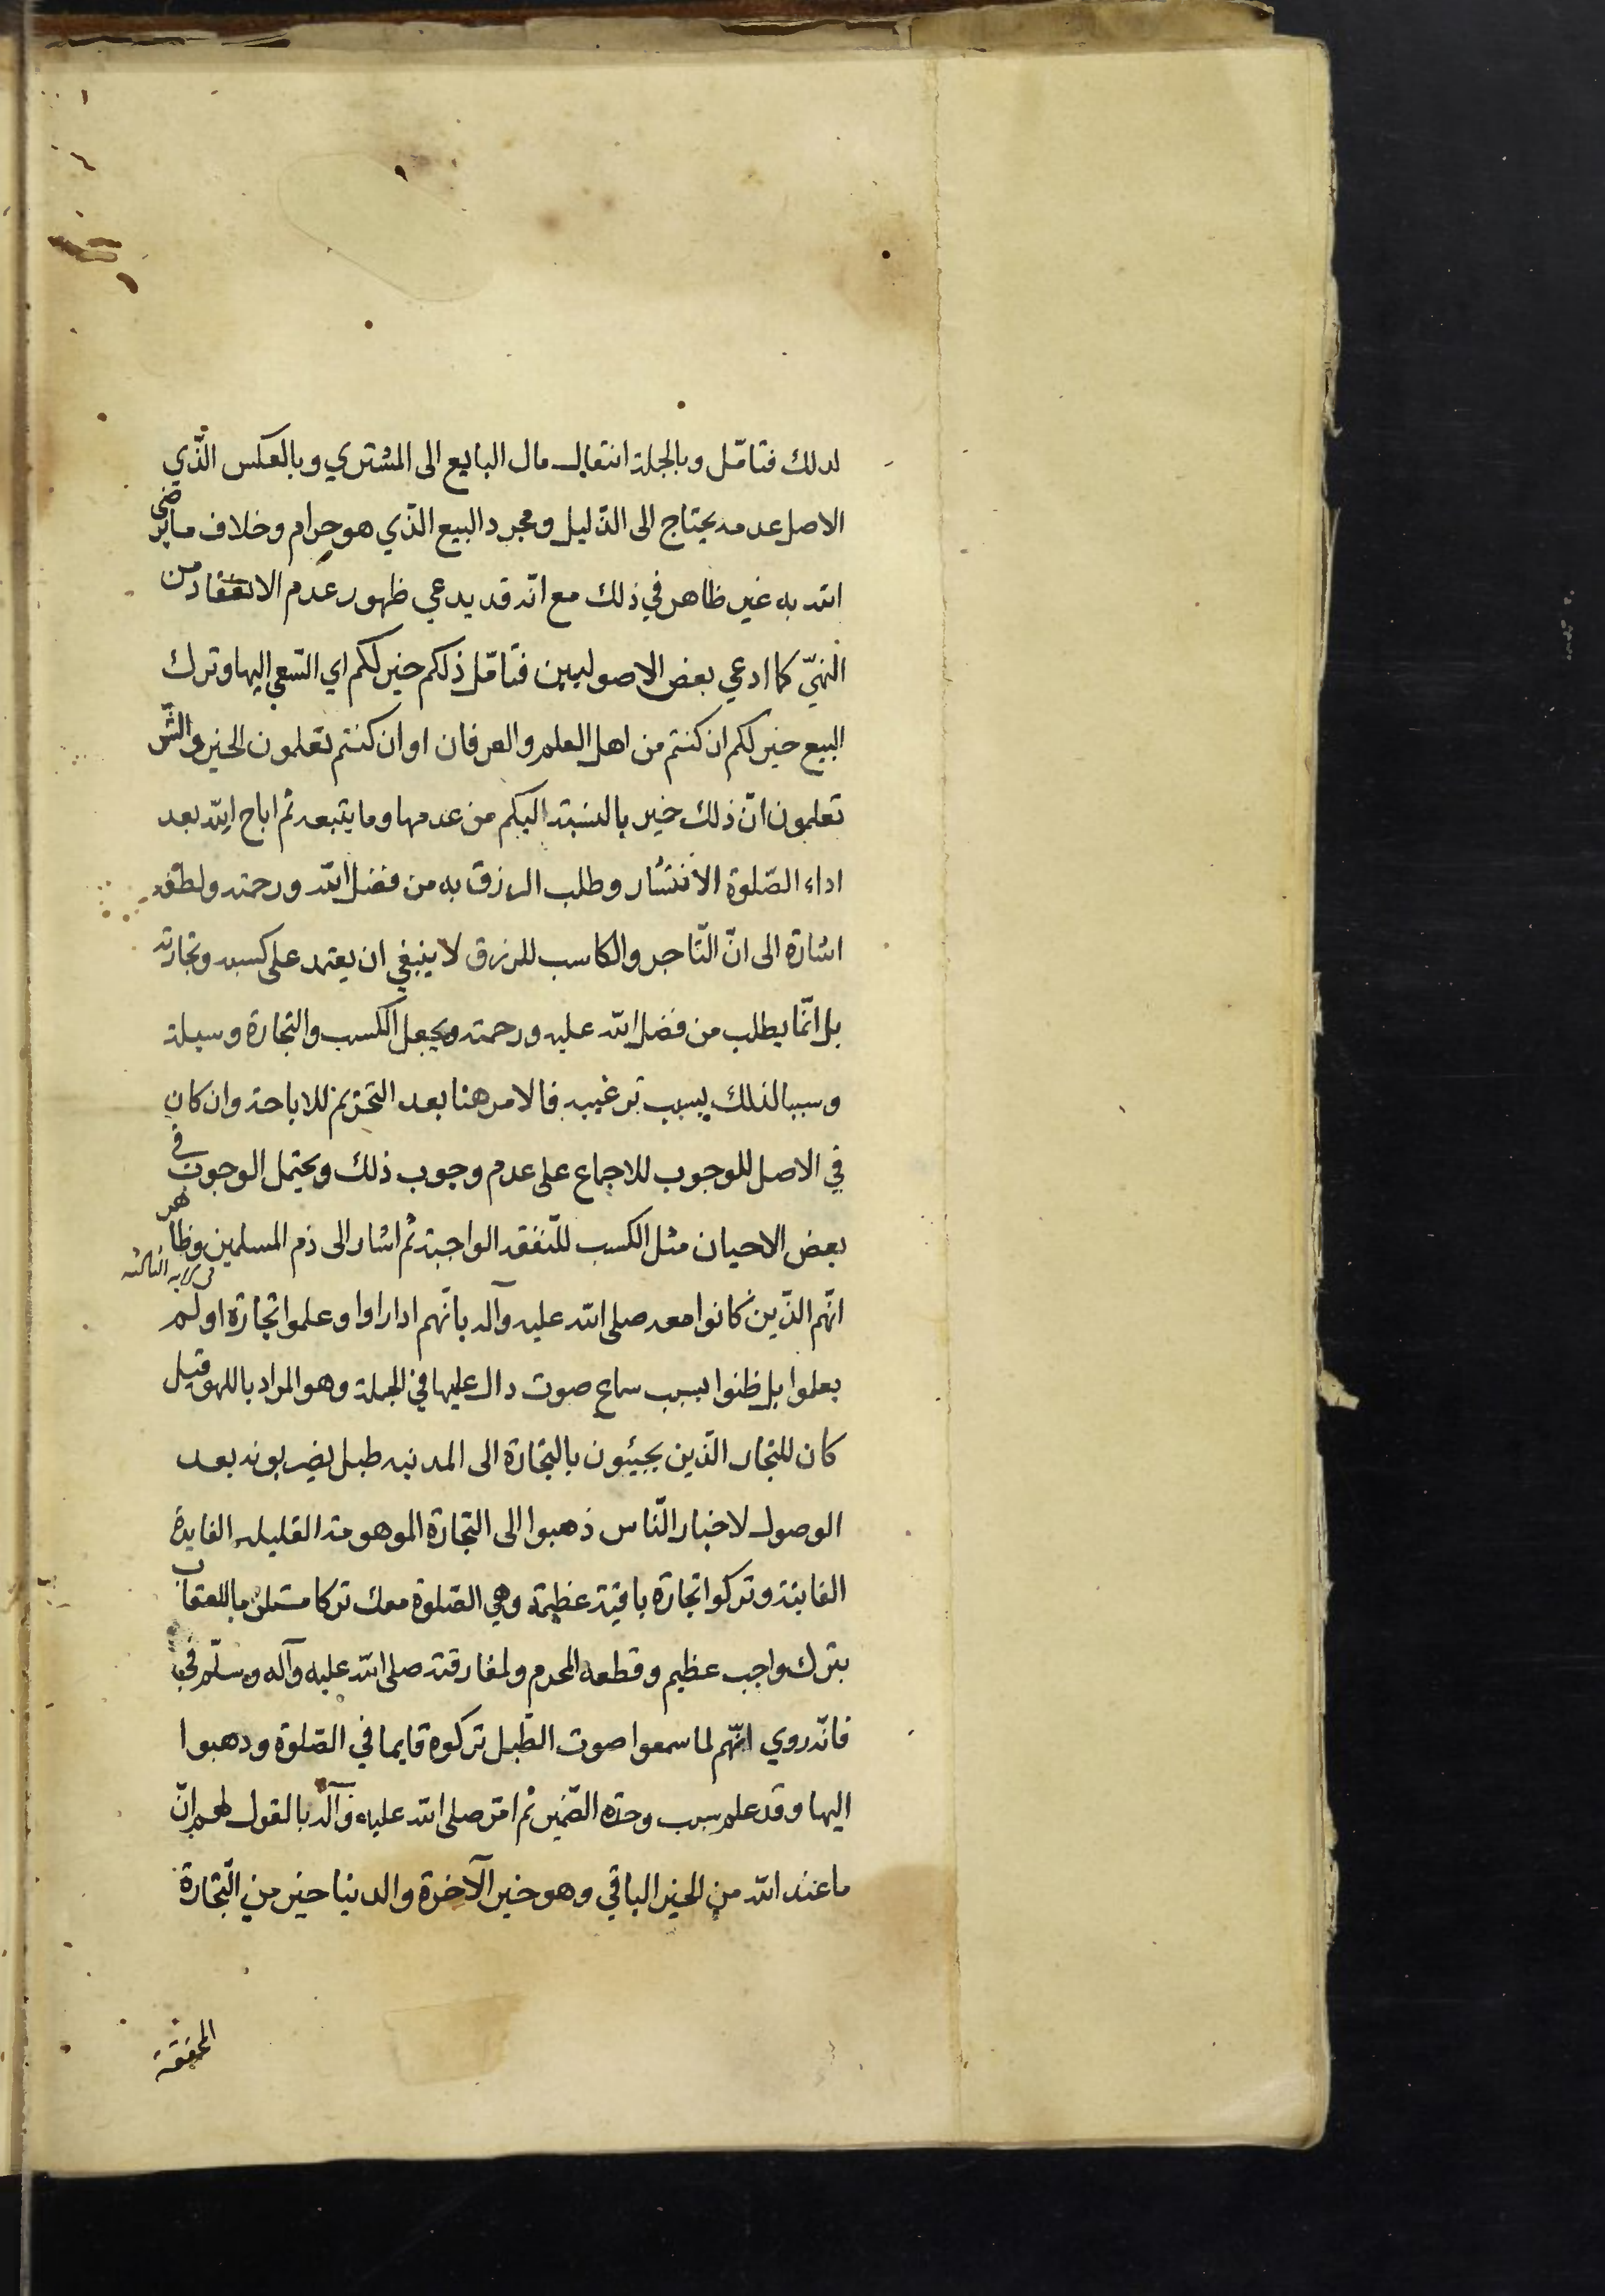 لدلك فتامّل وبالجملة انتقال مال البايع الى المشتري وبالعكس الّذي
الاصل عدمه يحتاج الى الدّليل ومجرد البيع الّذي هو حرام وخلاف ما يرضى
الله به غير ظاهر في ذلك مع انّه قد يدعي ظهور عدم الانعقاد من
النهيّ كما ادعي بعض الاصوليين فتامّل ذلكم خير لكم اي السّعي اليها وترك
البيع خير لكم ان كنتم من اهل العلم والعرفان او ان كنتم تعلمون الخير والشّر
تعلمون انّ ذلك خير بالنسبة اليكم من عدمها وما يتبعه ثم اباح الله بعد
اداء الصّلوة الانتشار وطلب الرزق به من فضل الله ورحمته ولطفه
اشارة الى انّ التّاجر والكاسب للرزق لا ينبغي ان يعتمد على كسبه وتجارته
بل انّما يطلب من فضل الله عليه ورحمته ويجعل الكسب والتجارة وسيلة
وسببا لذلك بسبب ترغيبه فالامر هنا بعد التحريم للاباحة وان كان
في الاصل للوجوب للاجماع على عدم وجوب ذلك ويحتمل الوجوب في
بعض الاحيان مثل الكسب للنّفقه الواجبة ثم اشار الى ذم المسلمين وظاهر
في الايه الثالثه
انّهم الّذين كانوا معه صلى الله عليه وآله بانّهم اذا راوا وعلموا تجارة او لم
يعلموا بل ظنوا بسبب سماع صوت دال عليها في الجملة وهو المراد باللهو قيل
كان للتجار الّذين يجيئون بالتجارة الى المدينه طبل يضربونه بعد
الوصول لاخبار النّاس ذهبوا الى التجارة الموهومة القليله الفايدة
الفانية وتركوا تجارة باقية عظيمة وهي الصّلوة معك تركا مستلزما للعقاب
بترك واجب عظيم وقطعه المحرم ولمفارقته صلى الله عليه وآله وسلّم
فانّه روي انّهم لما سمعوا صوت الطّبل تركوه قايما في الصّلوة ودهبوا
اليها وقد علم سبب وحدة الضّمير ثم امر صلى الله عليه وآله بالقول لهم انّ
ما عند الله من الخير الباقي وهو خير الآخرة والدنيا خير من التّجارة
المحققة